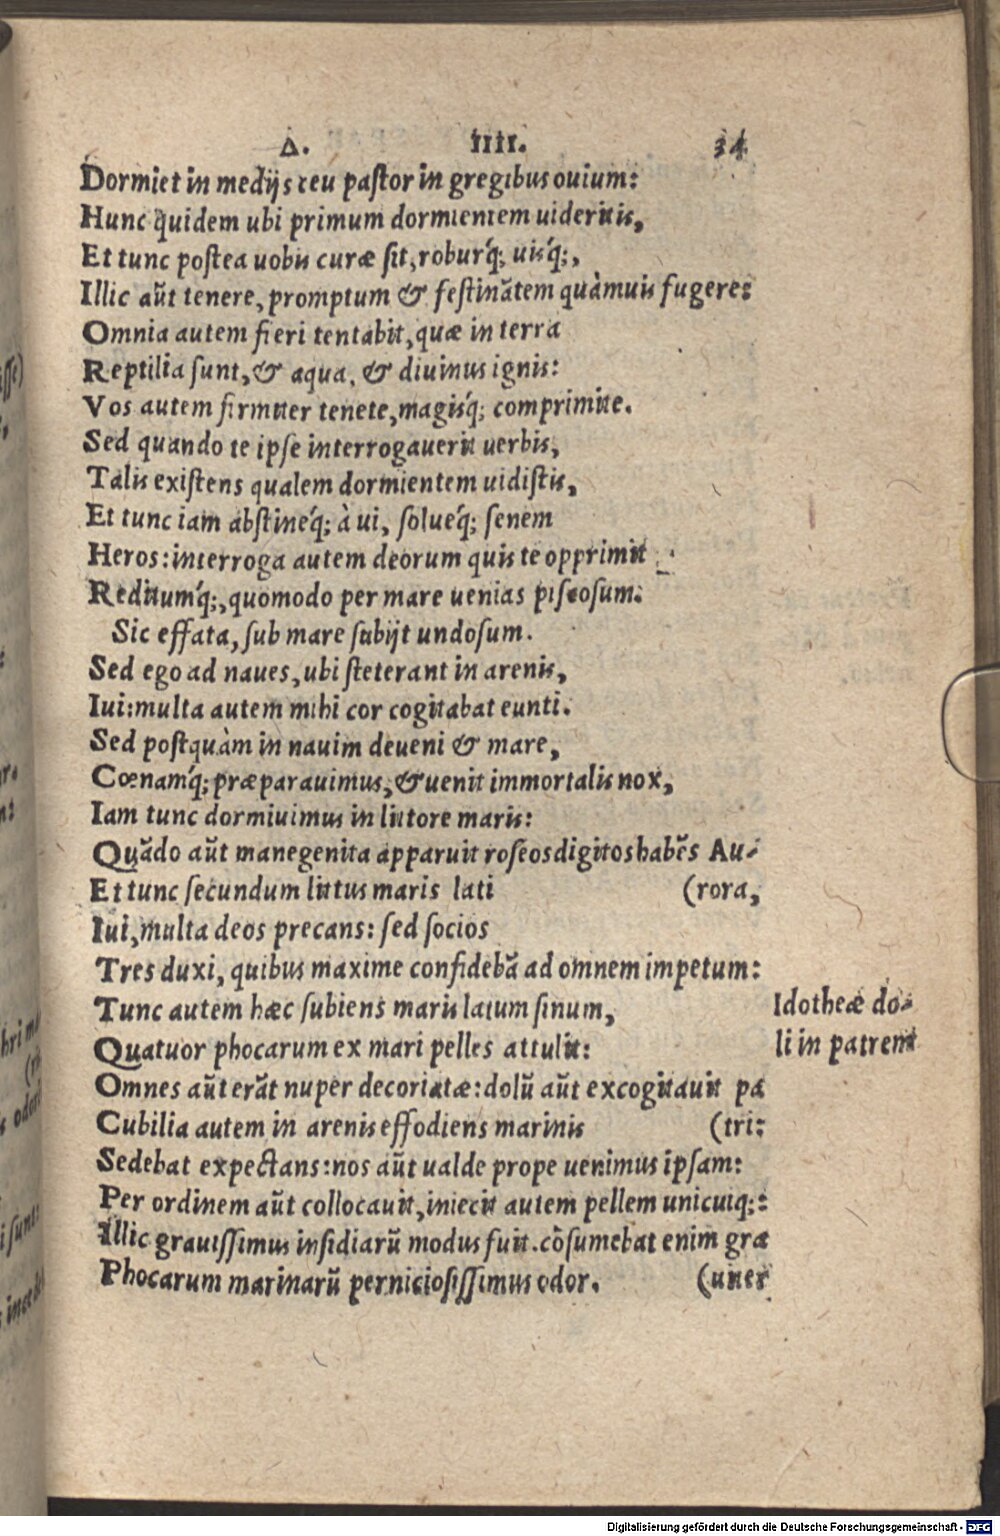 Δ. IIII. 34
Dormiet in medijs ceu pastor in gregibus ouium:
Hunc quidem ubi primum dormientem uideritis,
Et tunc postea uobis curæ sit, roburq́;, uisq́;,
Illic aūt tenere, promptum & festinātem quàmuis fugere:
Omnia autem fieri tentabit, quæ in terra
Reptilia sunt, & aqua, & diuinus ignis:
Vos autem firmiter tenete, magisq́; comprimite.
Sed quando te ipse interrogauerit uerbis,
Talis existens qualem dormientem uidistis,
Et tunc iam abstineq́; à ui, solueq́; senem
Heros: interroga autem deorum quis te opprimit
Reditumq́;, quomodo per mare uenias piscosum.
Sic effata, sub mare subijt undosum.
Sed ego ad naues, ubi steterant in arenis,
Iui: multa autem mihi cor cogitabat eunti.
Sed postquàm in nauim deueni & mare,
Cœnamq́; præparauimus, & uenit immortalis nox,
Iam tunc dormiuimus in littore maris:
Quādo aūt manegenita apparuit roseos digitos habēs Au-
Et tunc secundum littus maris lati (rora,
Iui, multa deos precans: sed socios
Tres duxi, quibus maxime confidebā ad omnem impetum:
Tunc autem hæc subiens maris latum sinum,
Quatuor phocarum ex mari pelles attulit:
Omnes aūt erāt nuper decoriatæ: dolū aūt excogitauit pa
Cubilia autem in arenis effodiens marinis (tri:
Sedebat expectans: nos aūt ualde prope uenimus ipsam:
Per ordinem aūt collocauit, iniecit autem pellem unicuiq;:
Illic grauissimus insidiarū modus fuit. cōsumebat enim gra
Phocarum marinarū perniciosissimus odor. (uiter
Idotheæ do-
li in patrem
Digitalisierung gefördert durch die Deutsche Forschungsgemeinschaft - DFG